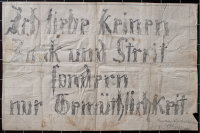 Ich liebe keinen
Zank und Streit
sondern
nur Gemüthlichkeit